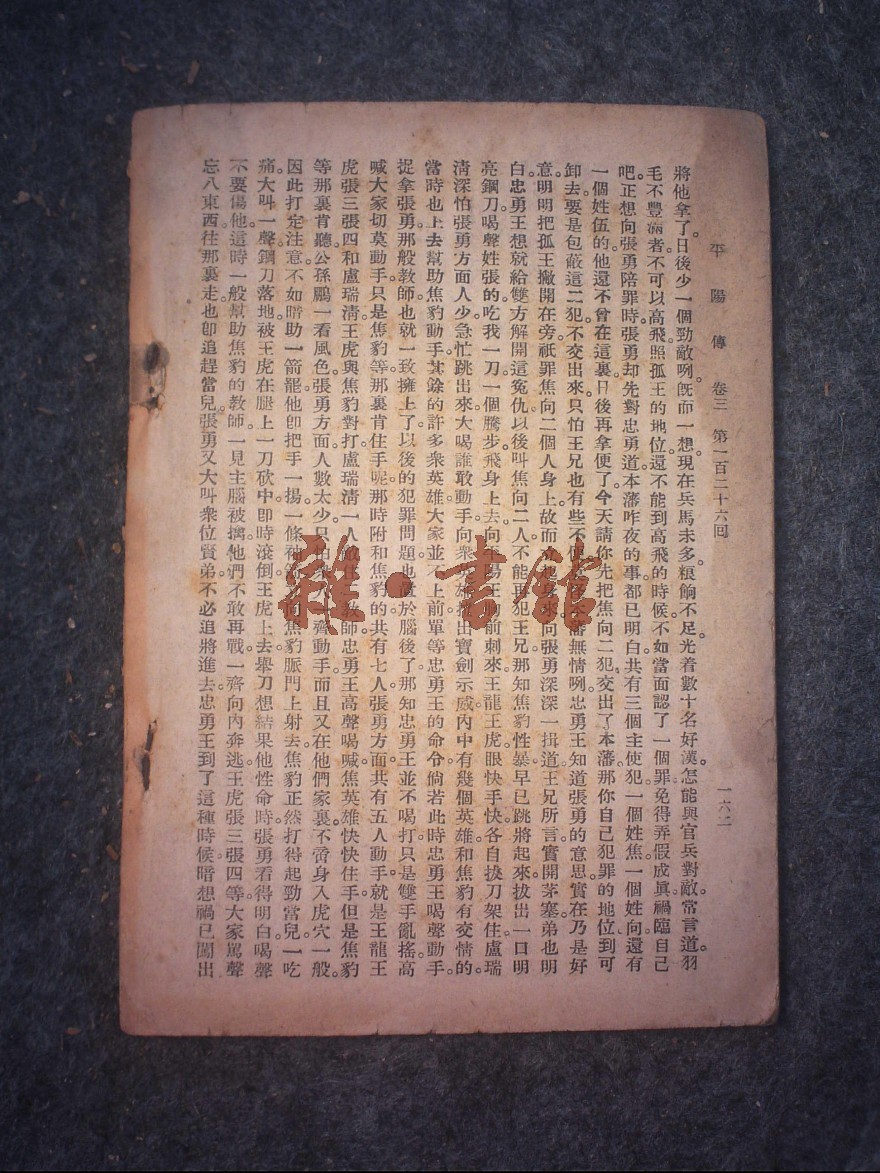 平陽傳 卷三 第一百二十六回 一六二
將他拿了。日後少一個勁敵咧。旣而一想。現在兵馬未多。粮餉不足。光着數十名好漢。怎能與官兵對敵。常言道。羽
毛不豐滿者。不可以高飛。照孤王的地位。還不能到高飛的時候。不如當面認了一個罪。免得弄假成眞。禍臨自己
吧。正想向張勇陪罪時。張勇却先對忠勇道。本藩昨夜的事都已明白。共有三個主使犯。一個姓焦。一個姓向。還有
一個姓伍的。他還不曾在這裏。日後再拿便了。今天請你先把焦向二犯。交出了本藩。那你自己犯罪的地位。到可
卸去。要是包蔽這二犯。不交出來。只怕王兄也有些不 本藩無情咧。忠勇王知道張勇的意思。實在乃是好
意。明明把孤王撇開在旁。祇罪焦向二個人身上。故而 來。向張勇深深一揖道。王兄所言。實開茅塞。弟也明
白。忠勇王想就給雙方解開這寃仇。以後叫焦向二人。不能再犯王兄。那知焦豹性暴。早已跳將起來。拔出一口明
亮鋼刀。喝聲姓張的吃我一刀。一個騰步。飛身上去。向平陽王 前刺來。王龍王虎眼快手快。各自拔刀架住。盧瑞
淸深怕張勇方面人少。急忙跳出來大喝。誰敢動手。向衆 出寶劍示威。內中有幾個英雄。和焦豹有交情的。
當時也上去幫助焦豹動手。其餘的許多衆英雄。大家並不上前。單等忠勇王的命令。倘若此時忠勇王喝聲動手。
捉拿張勇。那般教師也就一致擁上了。以後的犯罪問題。也 於腦後了。那知忠勇王並不喝打。只是雙手亂搖。高
喊大家切莫動手。只是焦豹等那裏肯住手呢。那時附和焦豹的。共有七人。張勇方面。共有五人動手。就是王龍王
虎張三張四和盧瑞淸。王虎與焦豹對打。盧瑞淸一人 敎師。忠勇王高聲喝喊。焦英雄快快住手。但是焦豹
等那裏肯聽。公孫鵬一看風色。張勇方面人數太少。只怕 齊動手。而且又在他們家裏。不啻身入虎穴一般。
因此打定注意。不如暗助一箭罷。他卽把手一揚。一條袖 向焦豹脈門上射去。焦豹正然打得起勁當兒。一吃
痛。大叫一聲。鋼刀落地。被王虎在腿上一刀砍中。卽時滾倒。王虎上去。舉刀想結果他性命時。張勇看得明白。喝聲
不要傷他。這時一般幫助焦豹的教師。一見主腦被擒。他們不敢再戰。一齊向內奔逃。王虎張三張四等。大家罵聲
忘八東西往那裏走。也卽追趕當兒。張勇又大叫衆位賢弟。不必追將進去。忠勇王到了這種時候。暗想禍已闖出